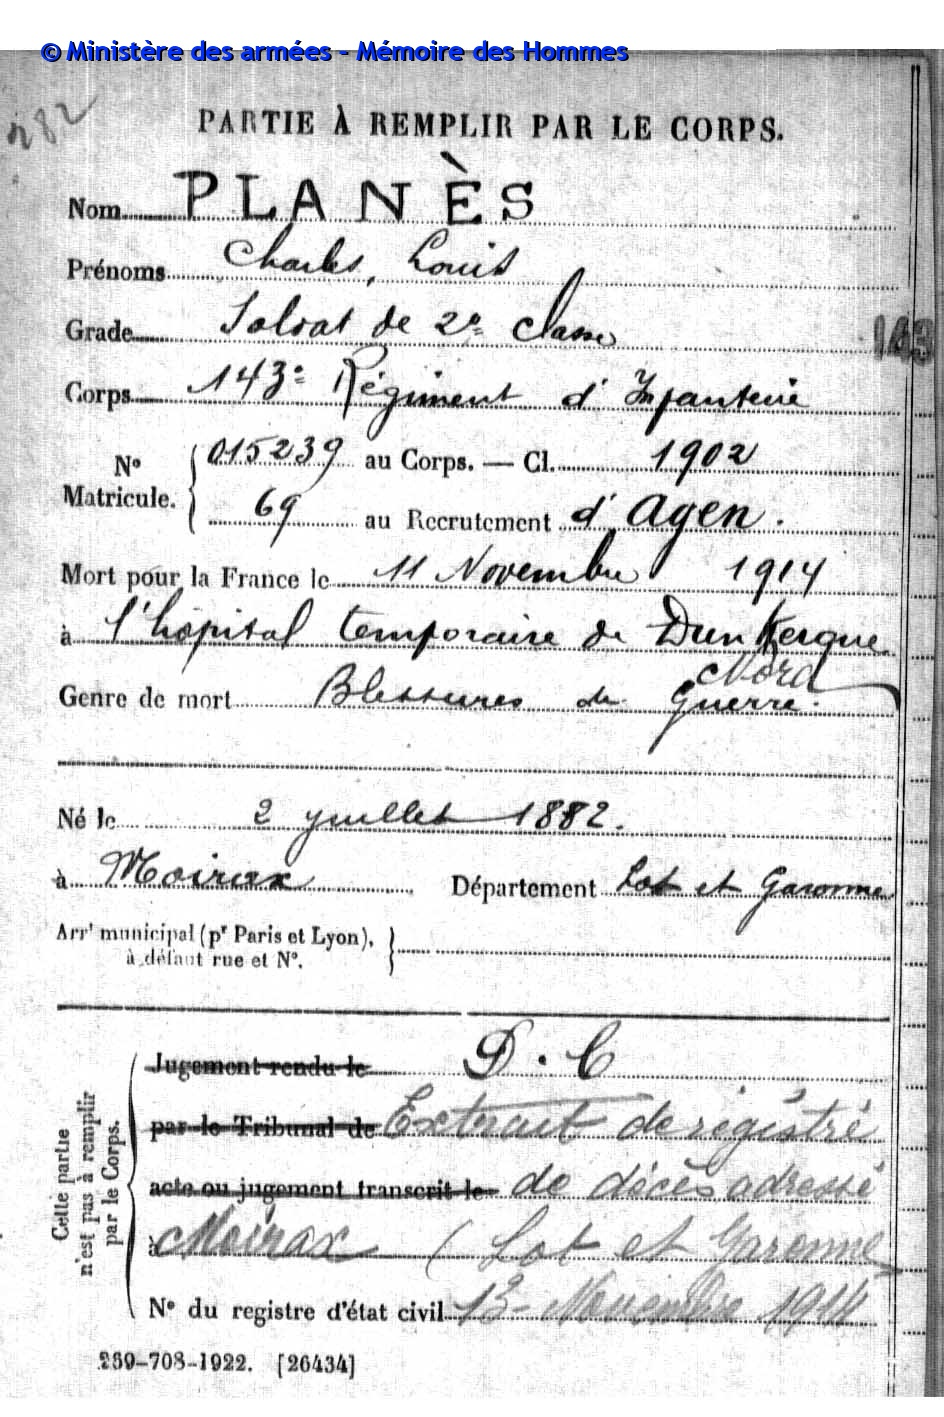 © Ministère des armées - Mémoire des Hommes
282
PARTIE À REMPLIR PAR LE CORPS.
Nom PLANÈS
Prénoms Charles, Louis
Grade Soldat de 2e classe
143
Corps 143e Régiment d'Infanterie
N° Matricule. 015239 au Corps. — Cl. 1902
69 au Recrutement d'Agen.
Mort pour la France le 11 Novembre 1914
à l'hôpital temporaire de Dunkerque
Nord
Genre de mort Blessures de Guerre.
Né le 2 juillet 1882.
à Moirax Département Lot et Garonne
Arrt municipal (pr Paris et Lyon),
à défaut rue et N°.
Cette partie n'est pas à remplir par le Corps.
Jugement rendu le D.C
par le Tribunal de Extrait de registre
acte ou jugement transcrit le de décès adressé
à Moirax (Lot et Garonne
N° du registre d'état civil 13 - Novembre 1914
269-708-1922. [26434]